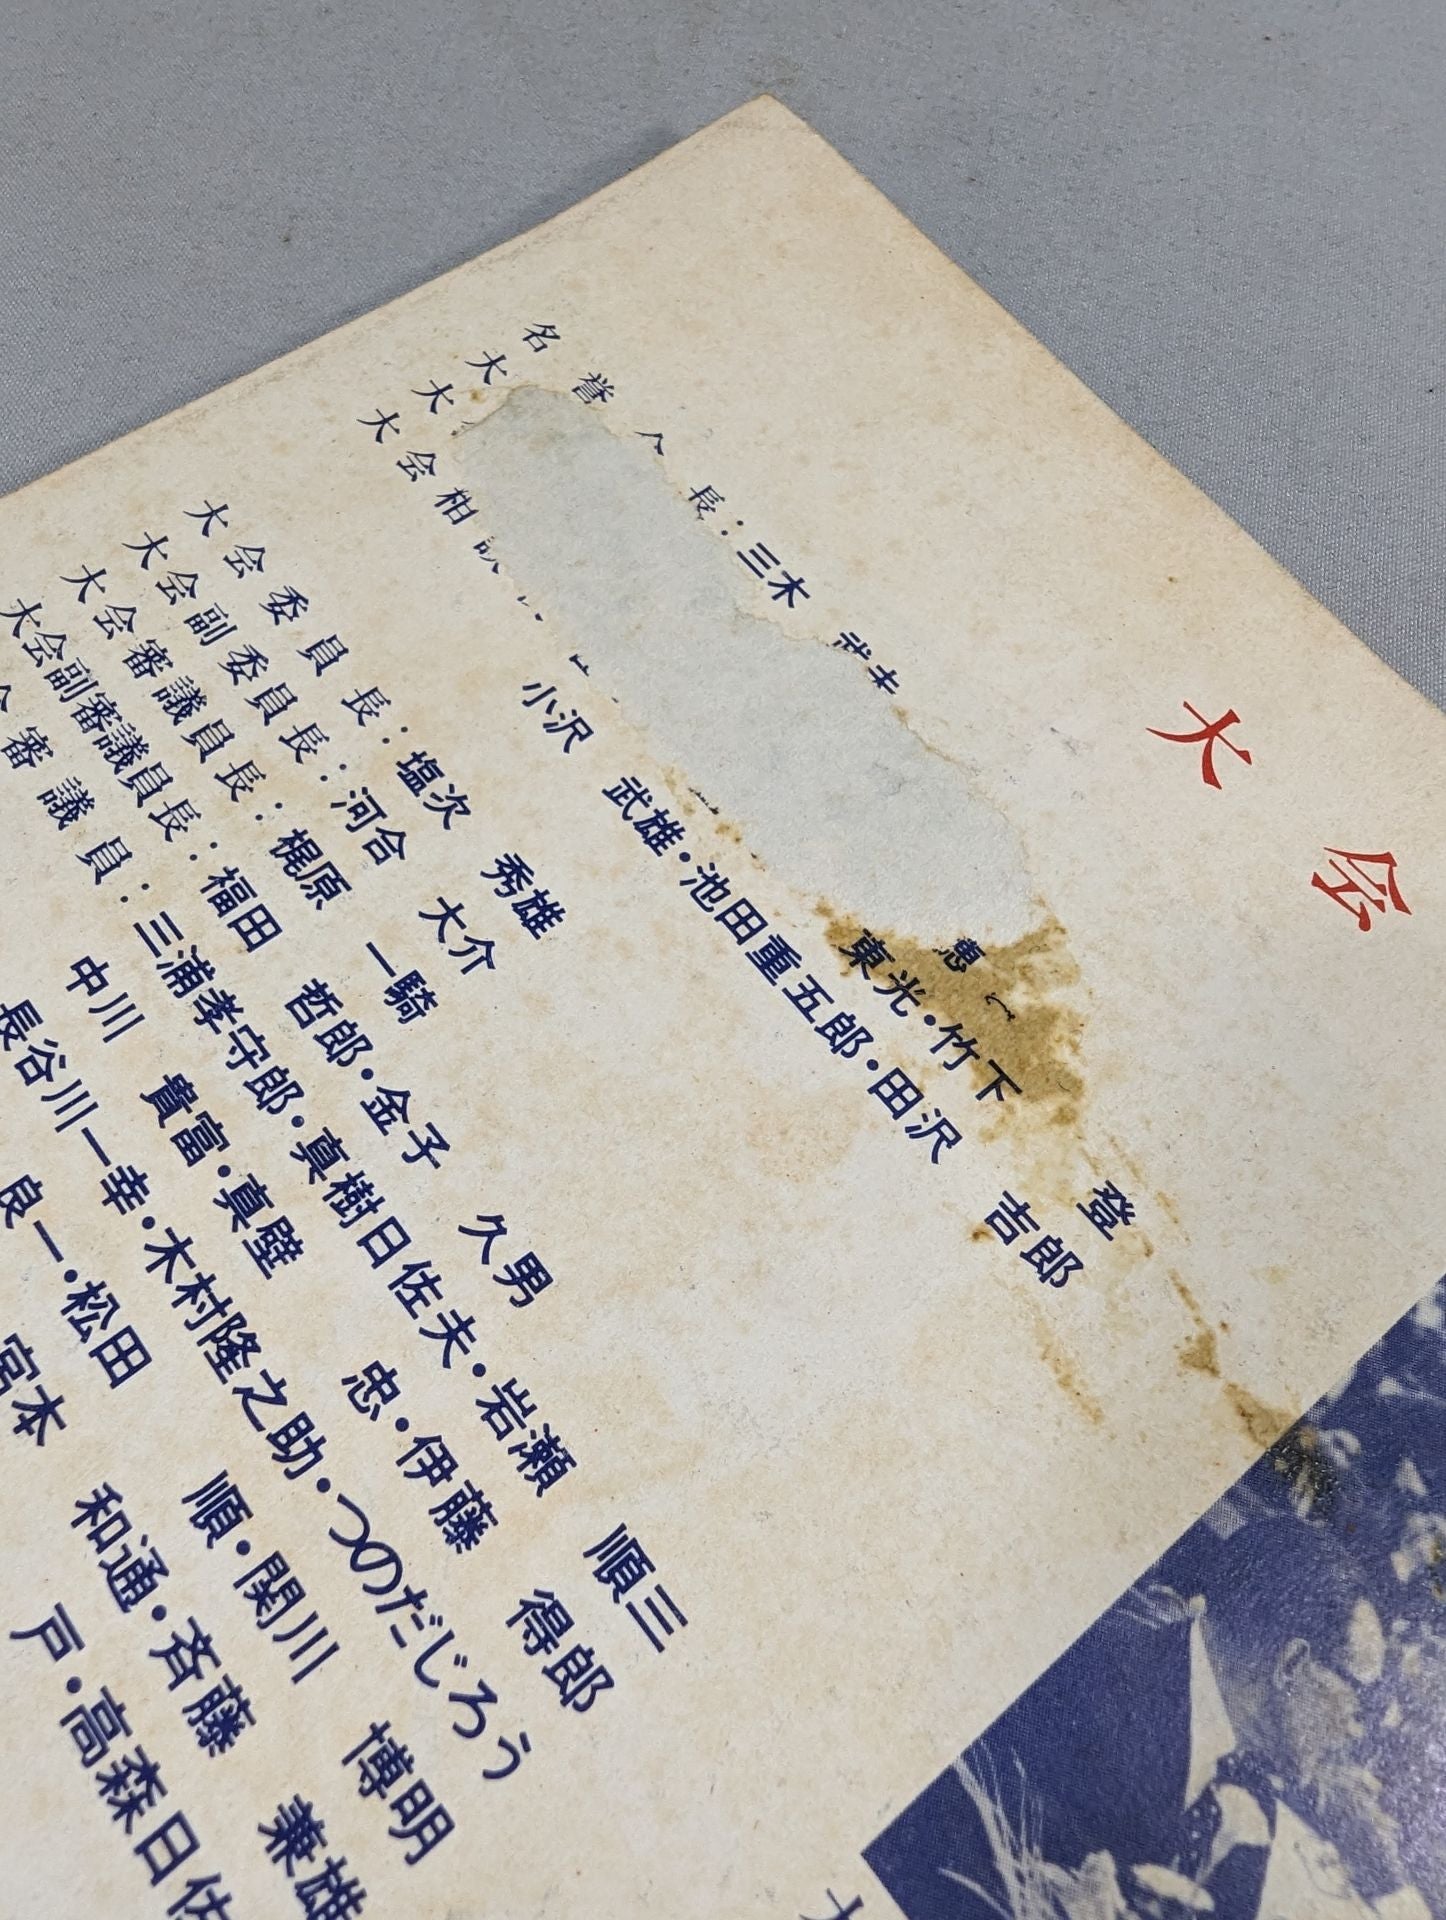 大会
名誉 長：三木 武夫
大 恵
大 東光・竹下 登
大会相談 小沢 武雄・池田重五郎・田沢 吉郎
大会委員長：塩次 秀雄
大会副委員長：河合 大介
大会審議員長：梶原 一騎
大会副審議員長：福田 哲郎・金子 久男
会審議員：三浦孝守郎・真樹日佐夫・岩瀬 順三
中川 貴富・真壁 忠・伊藤 得郎
長谷川一幸・木村隆之助・つのだじろう
良一・松田 順・関川 博明
宮本 和通・斉藤 兼雄
戸・高森日佐
大